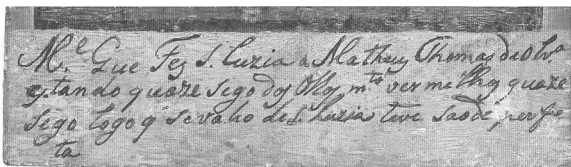 M.e Que Fez S. Luzia a Matheus Thomas de olr.a
estando quaze sego dos Olhos m.to vermelhos quaze
sego logo q se valeo de S. Luzia teve saode perfe
ta